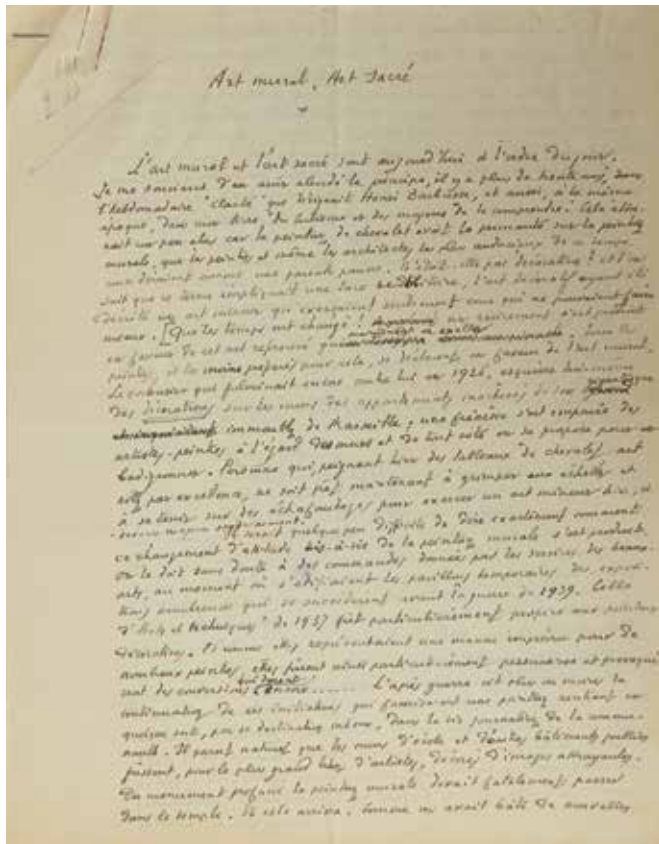 Art mural, Art Sacré
L'art mural et l'art sacré sont aujourd'hui à l'ordre du jour.
Je me souviens d'en avoir abordé le principe, il y a plus de trente ans, dans
l'hebdomadaire "Clarté" que dirigeait Henri Barbusse, et aussi, à la même
époque, dans mon livre "Du cubisme et des moyens de le comprendre". Cela
un peu alors car la peinture de chevalet avait la primauté sur la peinture
murale, que les peintres et même les architectes les plus audacieux de ce temps
comme une parente pauvre. N'était-elle pas décorative ? et l'on
sait que ce terme impliquait une tare, l'art décoratif ayant été
décrété un art mineur qu'exerçaient seulement ceux qui ne pouvaient faire
mieux. [Que les temps ont changé ! un revirement s'est produit
en faveur de cet art réprouvé tous les
peintres, et les moins préparés pour cela, se déclarent en faveur de l'art mural.
Le Corbusier qui fulminait encore contre lui en 1926, esquisse lui-même
des décorations sur les murs des appartements de son gigantesque
immeuble de Marseille ; une frénésie s'est emparée des
artistes-peintres à l'égard des murs et de tout côté on se propose pour
badigeonner. Personne qui, peignant hier des tableaux de chevalet, art
noble par excellence, ne soit prêt maintenant à grimper aux échelles et
à se tenir sur des échafaudages pour exercer un art mineur hier,
Il serait quelque peu difficile de dire exactement comment
ce changement d'attitude vis-à-vis de la peinture murale s'est produit.
on le doit sans doute à des commandes données par les services des beaux-
arts, au moment où s'édifiaient les pavillons temporaires des exposi-
tions nombreuses qui se succédèrent avant la guerre de 1939. Celle
d'"Arts et techniques" de 1937 fut particulièrement propice aux peintures
décoratives. Et comme elles représentaient une manne imprévue pour de
nombreux peintres, elles furent ainsi particulièrement et
des conversions ...... L'après guerre vit plus en mieux la
continuation de ces initiatives qui favorisaient une peinture rentrant en
quelque sorte, par sa destination même, dans la vie journalière de la commu-
nauté. Il parut naturel que les murs d'école et d'autres bâtiments publics
fussent, pour le plus grand bien d'artistes, ornés d'images attrayantes.
Du monument profane la peinture murale devait fatalement passer
dans le temple. Et cela arriva. Comme on avait bâti de nouvelles